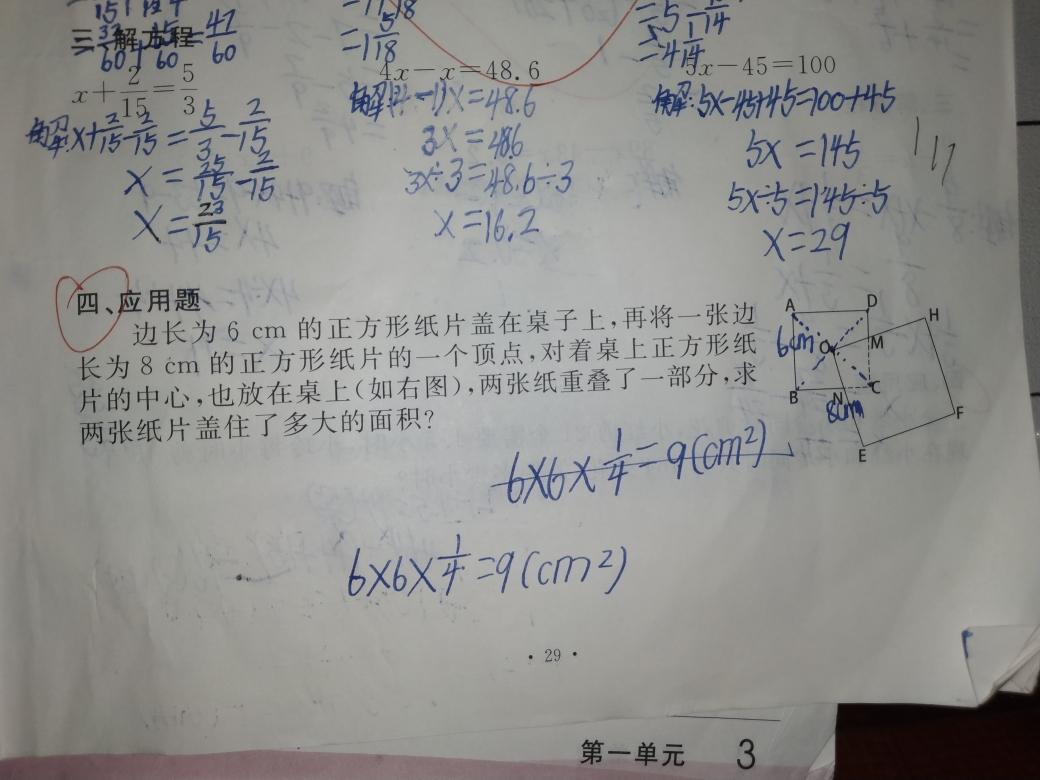 =47/60
=1 5/18
=4 1/14
三、解方程
x+2/15=5/3
4x-x=48.6
5x-45=100
解:x+2/15-2/15=5/3-2/15
x=25/15-2/15
x=23/15
解:(4-1)x=48.6
3x=48.6
3x÷3=48.6÷3
x=16.2
解:5x-45+45=100+45
5x=145
5x÷5=145÷5
x=29
四、应用题
边长为 6 cm 的正方形纸片盖在桌子上,再将一张边
长为 8 cm 的正方形纸片的一个顶点,对着桌上正方形纸
片的中心,也放在桌上(如右图),两张纸重叠了一部分,求
两张纸片盖住了多大的面积?
A D H
6cm O M
B N C
8cm F
E
6×6×1/4=9(cm²)
6×6×1/4=9(cm²)
· 29 ·
第一单元 3